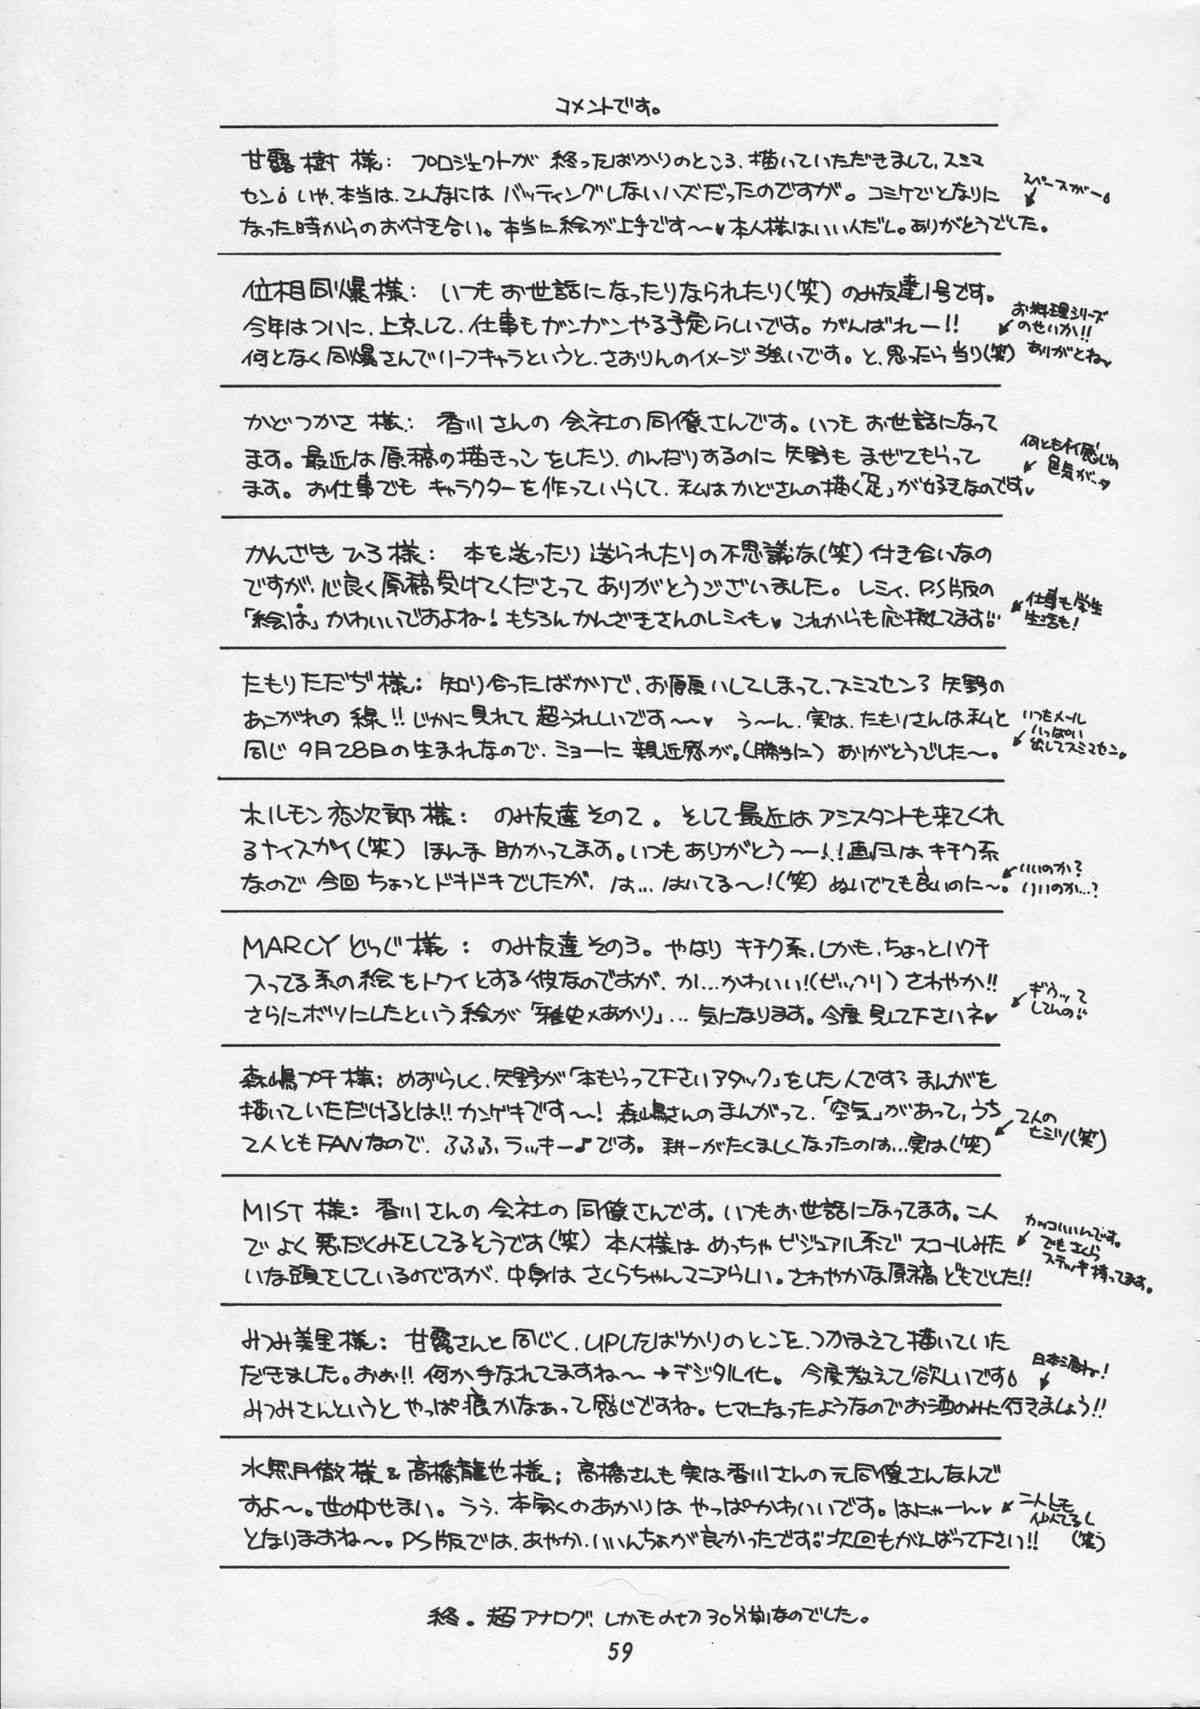 コメントです。
甘露樹様: プロジェクトが終ったばかりのところ、描いていただきまして、スミマ
セン。いや、本当は、こんなにはバッティングしないハズだったのですが。コミケでとなりに
なった時からのお付き合い。本当に絵が上手です〜♥本人様はいい人だし。ありがとうでした。
スペースがー
位相同爆様: いつもお世話になったりなられたり(笑)のみ友達1号です。
今年はついに、上京して、仕事もガンガンやる予定らしいです。がんばれー!!
何となく同爆さんでリーフキャラというと、さおりんのイメージ強いです。と、思ったら当り(笑)
お料理シリーズ
のせいか!!
ありがとね♥
かどつかさ様: 香川さんの会社の同僚さんです。いつもお世話になって
ます。最近は原稿の描きっこをしたり、のんだりするのに矢野もまぜてもらって
ます。お仕事でもキャラクターを作っていらして、私はかどさんの描く「足」が好きなのです♥
何ともイイ感じの
色気が…
かんざきひろ様: 本を送ったり送られたりの不思議な(笑)付き合いなの
ですが、心良く原稿受けてくださってありがとうございました。レミィ、PS版の
「絵は」かわいいですよね!もちろんかんざきさんのレミィも♥これからも応援してます!!
仕事も学生
生活も!
たもりただぢ様: 知り合ったばかりで、お願いしてしまって、スミマセン 矢野の
あこがれの線!!じかに見れて超うれしいです〜〜♥ う〜ん、実は、たもりさんは私と
同じ9月28日の生まれなので、ミョーに親近感が。(勝手に)ありがとうでした〜。
いつもメール
いっぱい
出してスミマセン。
ホルモン恋次郎様: のみ友達その2。そして最近はアシスタントも来てくれ
るナイスガイ(笑)ほんま助かってます。いつもありがとう〜!!画風はキチク系
なので今回ちょっとドキドキでしたが、は…はいてる〜!(笑)ぬいでても良いのに〜。
いいのか?
いいのか…?
MARCYどっぐ様: のみ友達その3。やはりキチク系、しかも、ちょっとハクチ
入ってる系の絵をトクイとする彼なのですが、か…かわいい!(ビックリ)さわやか!!
さらにボツにしたという絵が「雅史×あかり」…気になります。今度見して下さいネ♥
ギュウッて
してんの!!
森嶋プチ様: めずらしく、矢野が「本もらって下さいアタック」をした人です まんがを
描いていただけるとは!!カンゲキです〜!森嶋さんのまんがって、「空気」があって、うち
2人ともFANなので、ふふふラッキー♪です。耕一がたくましくなったのは…実は(笑)
2人の
ヒミツ(笑)
MIST様: 香川さんの会社の同僚さんです。いつもお世話になってます。二人
でよく悪だくみをしてるそうです(笑)本人様はめっちゃビジュアル系でスコールみた
いな頭をしているのですが、中身はさくらちゃんマニアらしい。さわやかな原稿どもでした!!
カッコいいんです。
でもさくら
ステッキ持ってます。
みつみ美里様: 甘露さんと同じく、UPしたばかりのとこを、つかまえて描いていた
だきました。おぉ!!何か手なれてますね〜→デジタル化。今度教えて欲しいです
みつみさんというとやっぱ痕かなぁって感じですね。ヒマになったようなのでお酒のみに行きましょう!!
日本酒ね!
水無月徹様&高橋龍也様; 高橋さんも実は香川さんの元同僚さんなんで
すよ〜。世の中せまい。うぅ、本家のあかりはやっぱかわいいです。はにゃーん♥
となりますね〜。PS版では、あやか、いいんちょが良かったです!!次回もがんばって下さい!!
二人とも
似てるし
(笑)
終。超アナログ、しかも〆切30分前なのでした。
59